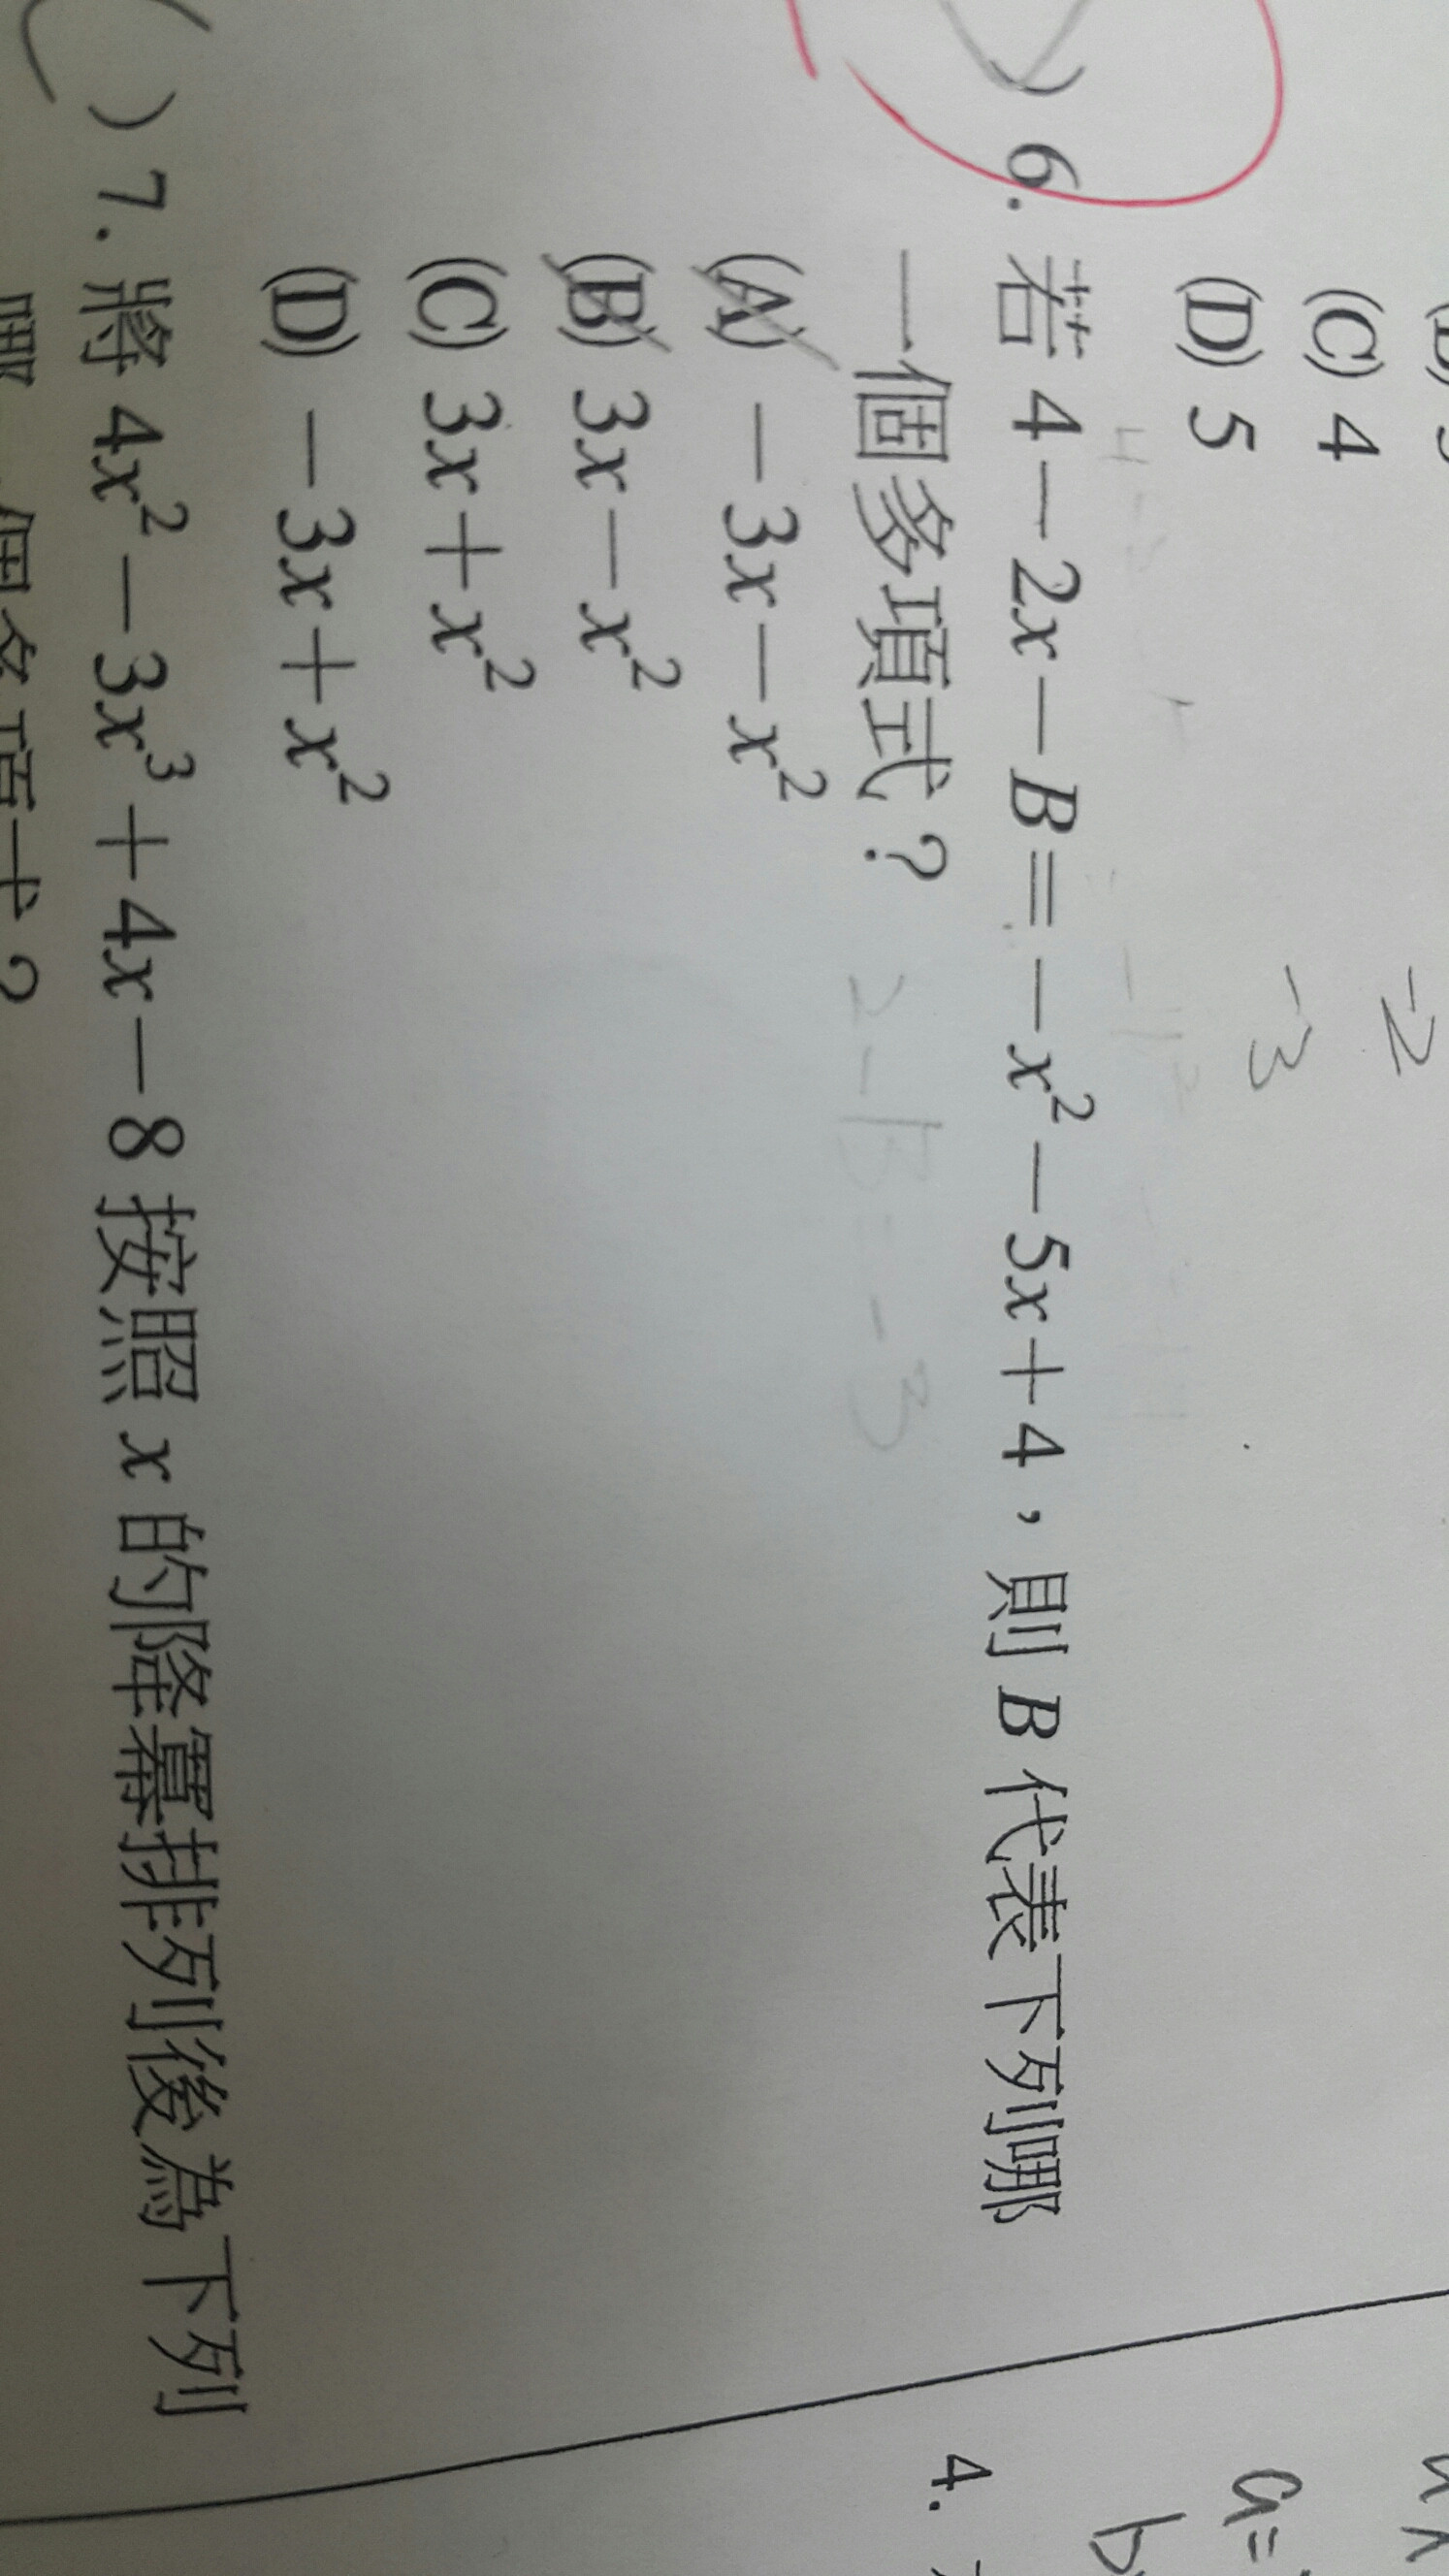 (C) 4
(D) 5
-2
-3
) 6. 若 4－2x－B＝－x²－5x＋4，則 B 代表下列哪
一個多項式？
2-B=-3
(A) －3x－x²
(B) 3x－x²
(C) 3x＋x²
(D) －3x＋x²
( ) 7. 將 4x²－3x³＋4x－8 按照 x 的降冪排列後為下列
哪一個多項式？
a=
b
4.